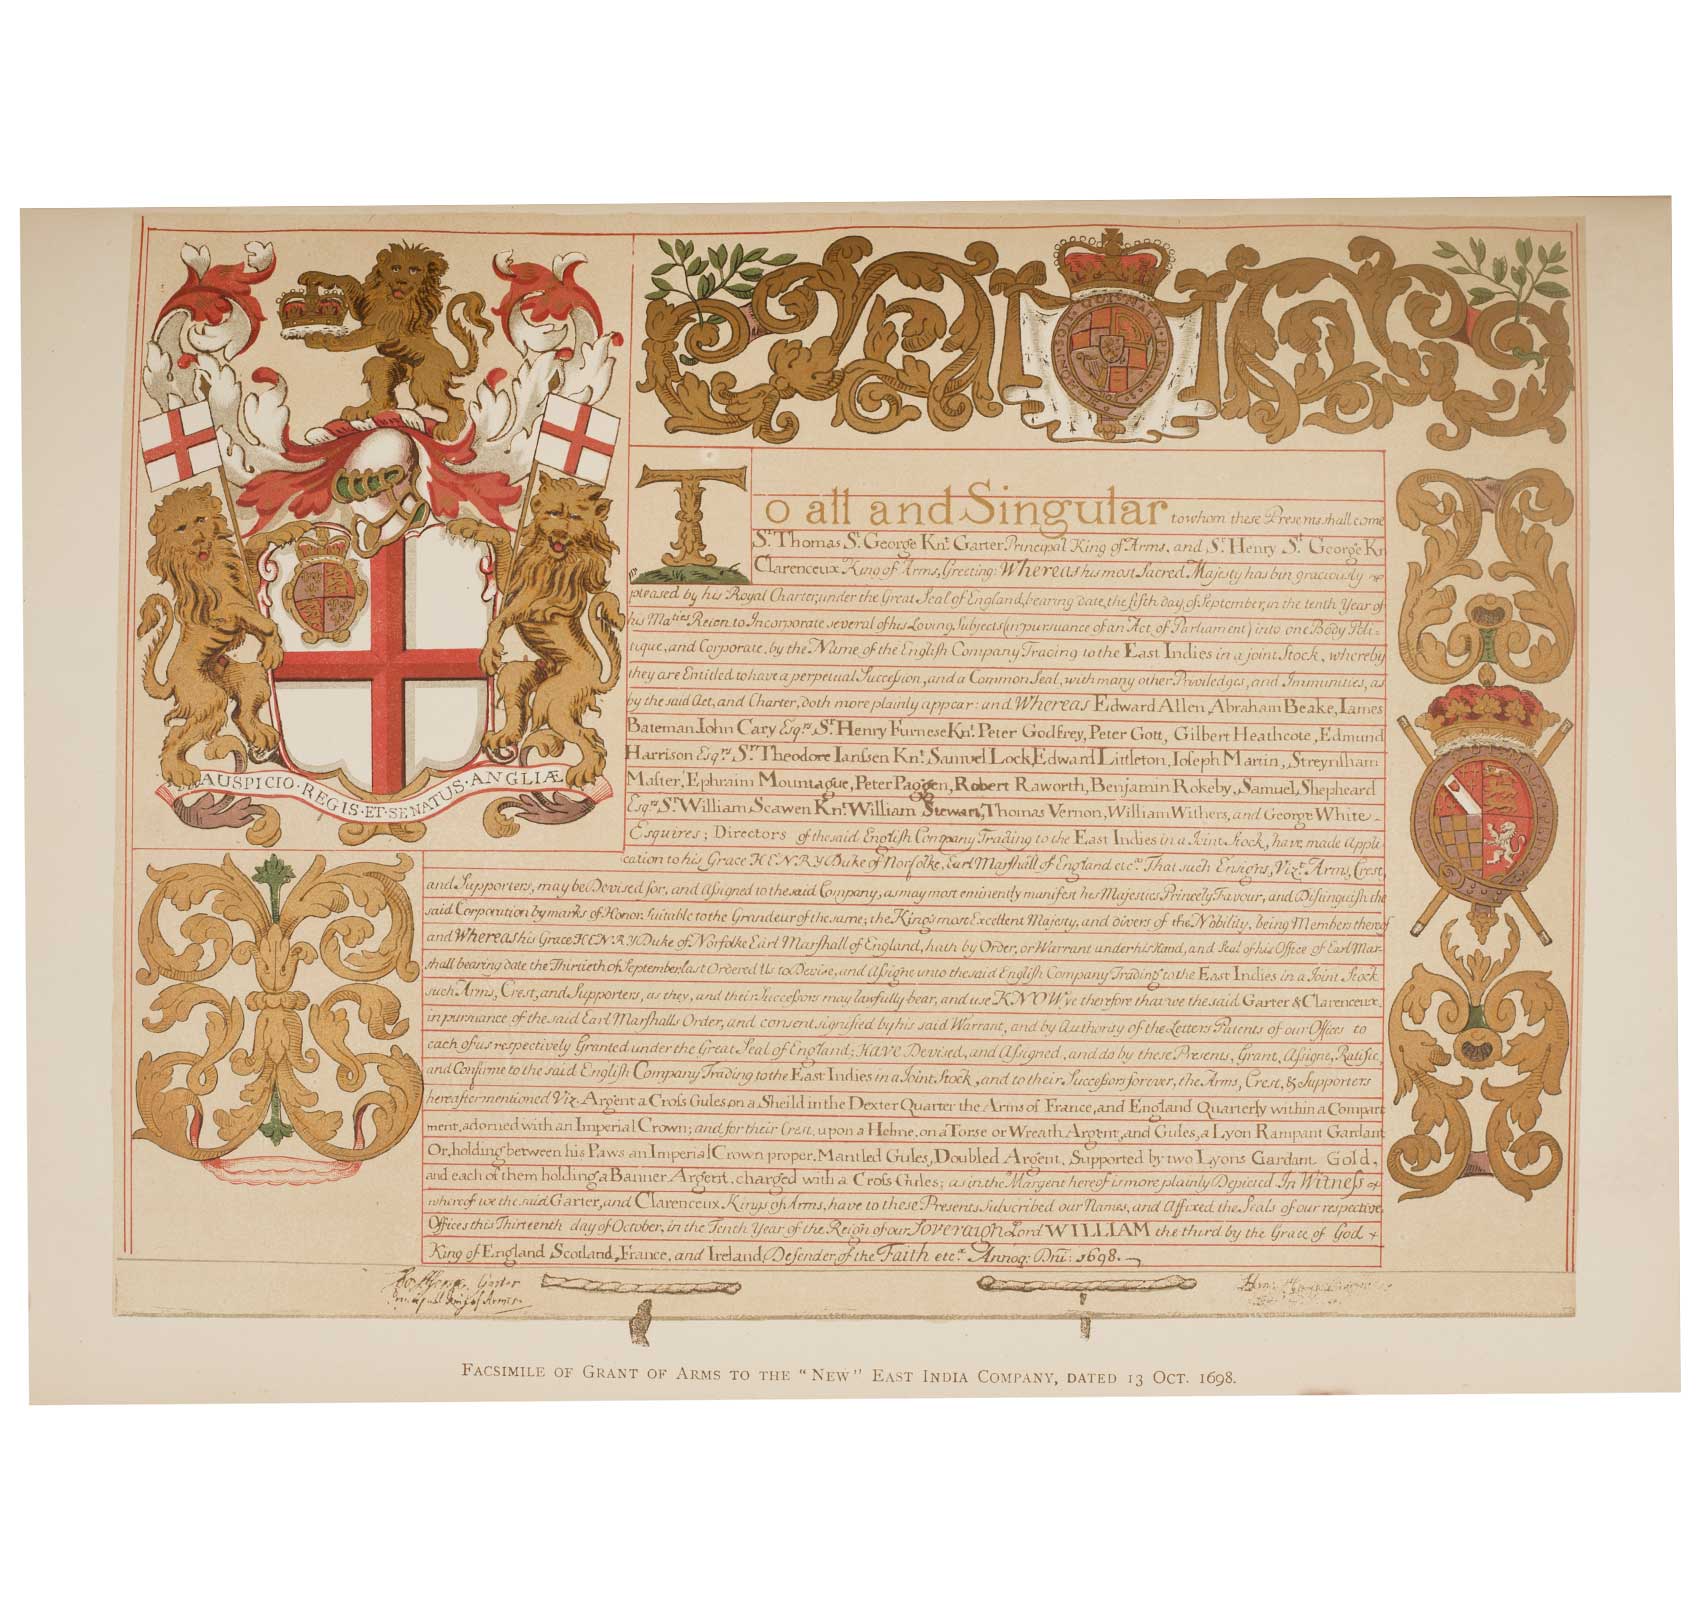 AUSPICIO·REGIS·ET·SENATUS·ANGLIÆ
To all and Singular to whom these Presents shall come
Sr. Thomas St. George Knt. Garter Principal King of Arms, and Sr. Henry St. George Kt
Clarenceux King of Arms, Greeting: Whereas his most Sacred Majesty has bin graciously
pleased by his Royal Charter, under the Great Seal of England, bearing date, the fifth day, of September, in the tenth Year of
his Maties Reign to Incorporate several of his Loving Subjects (in pursuance of an Act, of Parliament) into one Body Poli-
tique, and Corporate, by the Name of the English Company Trading to the East Indies in a joint Stock, whereby
they are Entitled to have a perpetual Succession, and a Common Seal, with many other Priviledges, and Immunities, as
by the said Act, and Charter, doth more plainly appear: and Whereas Edward Allen, Abraham Beake, Iames
Bateman, Iohn Cary Esqrs. Sr. Henry Furnese Knt. Peter Godfrey, Peter Gott, Gilbert Heathcote, Edmund
Harrison Esqrs. Sr. Theodore Ianssen Knt. Samuel Lock, Edward Littleton, Ioseph Martin, Streynsham
Master, Ephraim Mountague, Peter Paggen, Robert Raworth, Benjamin Rokeby, Samuel Shepheard
Esqrs. Sr. William Scawen Knt. William Stewart, Thomas Vernon, William Withers, and George White
Esquires; Directors of the said English Company Trading to the East Indies in a Joint Stock, have made Appli
cation to his Grace HENRY Duke of Norfolke, Earl Marshall of England etca. That such Ensigns, Vizt. Arms, Crest,
and Supporters, may be Devised for, and Assigned to the said Company, as may most eminently manifest his Majesties Princely Favour, and Distinguish the
said Corporation by marks of Honor Suitable to the Grandeur of the same; the King's most Excellent Majesty, and divers of the Nobility, being Members thereof
and Whereas his Grace HENRY Duke of Norfolke Earl Marshall of England, hath by Order, or Warrant under his Hand, and Seal of his Office of Earl Mar-
shall bearing date the Thirtieth of September last Ordered Us to Devise, and Assigne unto the said English Company Trading to the East Indies in a Joint Stock
such Arms, Crest, and Supporters, as they, and their Successors may lawfully bear, and use KNOW ye therefore that we the said Garter & Clarenceux,
in pursuance of the said Earl Marshalls Order, and consent signified by his said Warrant, and by Authority of the Letters Patents of our Offices to
each of us respectively Granted under the Great Seal of England; HAVE Devised, and Assigned, and do by these Presents, Grant, Assigne, Ratifie,
and Confirme to the said English Company Trading to the East Indies in a Joint Stock, and to their Successors forever, the Arms, Crest, & Supporters
hereafter mentioned Viz. Argent a Cross Gules, on a Sheild in the Dexter Quarter the Arms of France, and England Quarterly within a Compart
ment, adorned with an Imperial Crown; and for their Crest, upon a Helme, on a Torse or Wreath Argent, and Gules, a Lyon Rampant Gardant
Or, holding between his Paws an Imperial Crown proper, Mantled Gules, Doubled Argent, Supported by two Lyons Gardant Gold,
and each of them holding a Banner Argent, charged with a Cross Gules; as in the Margent hereof is more plainly Depicted In Witness
whereof we the said Garter, and Clarenceux Kings of Arms, have to these Presents Subscribed our Names, and Affixed the Seals of our respective
Offices this Thirteenth day of October, in the Tenth Year of the Reign of our Soveraign Lord WILLIAM the third by the Grace of God
King of England Scotland, France, and Ireland, Defender, of the Faith etca. Annoq: Dni: 1698.
Garter
Principall King of Armes
FACSIMILE OF GRANT OF ARMS TO THE "NEW" EAST INDIA COMPANY, DATED 13 OCT. 1698.